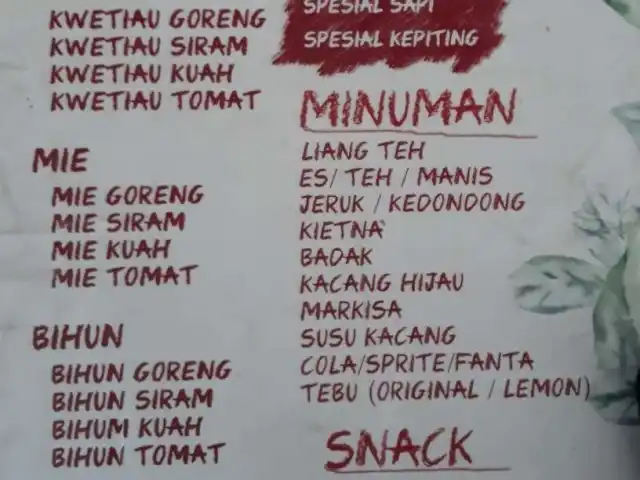 KWETIAU GORENG
KWETIAU SIRAM
KWETIAU KUAH
KWETIAU TOMAT
MIE
MIE GORENG
MIE SIRAM
MIE KUAH
MIE TOMAT
BIHUN
BIHUN GORENG
BIHUN SIRAM
BIHUM KUAH
BIHUN TOMAT
SPESIAL SAPI
SPESIAL KEPITING
MINUMAN
LIANG TEH
ES/ TEH / MANIS
JERUK / KEDONDONG
KIETNA
BADAK
KACANG HIJAU
MARKISA
SUSU KACANG
COLA/SPRITE/FANTA
TEBU (ORIGINAL / LEMON)
SNACK